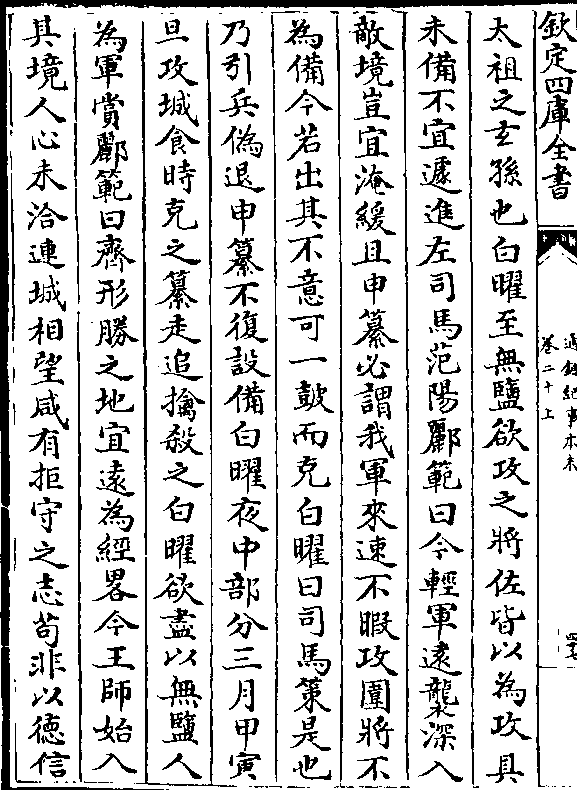 欽定四庫全書
通鑑紀事本末
卷二十上
太祖之𤣥孫也白曜至無鹽欲攻之將佐皆以為攻具
未備不宜遽進左司馬范陽酈範曰今輕軍遠襲深入
敵境豈宜淹緩且申纂必謂我軍來速不暇攻圍將不
為備今若出其不意可一鼓而克白曜曰司馬策是也
乃引兵偽退申纂不復設備白曜夜中部分三月甲寅
旦攻城食時克之纂走追擒殺之白曜欲盡以無鹽人
為軍賞酈範曰齊形勝之地宜遠為經畧今王師始入
其境人心未洽連城相望咸有拒守之志苟非以德信